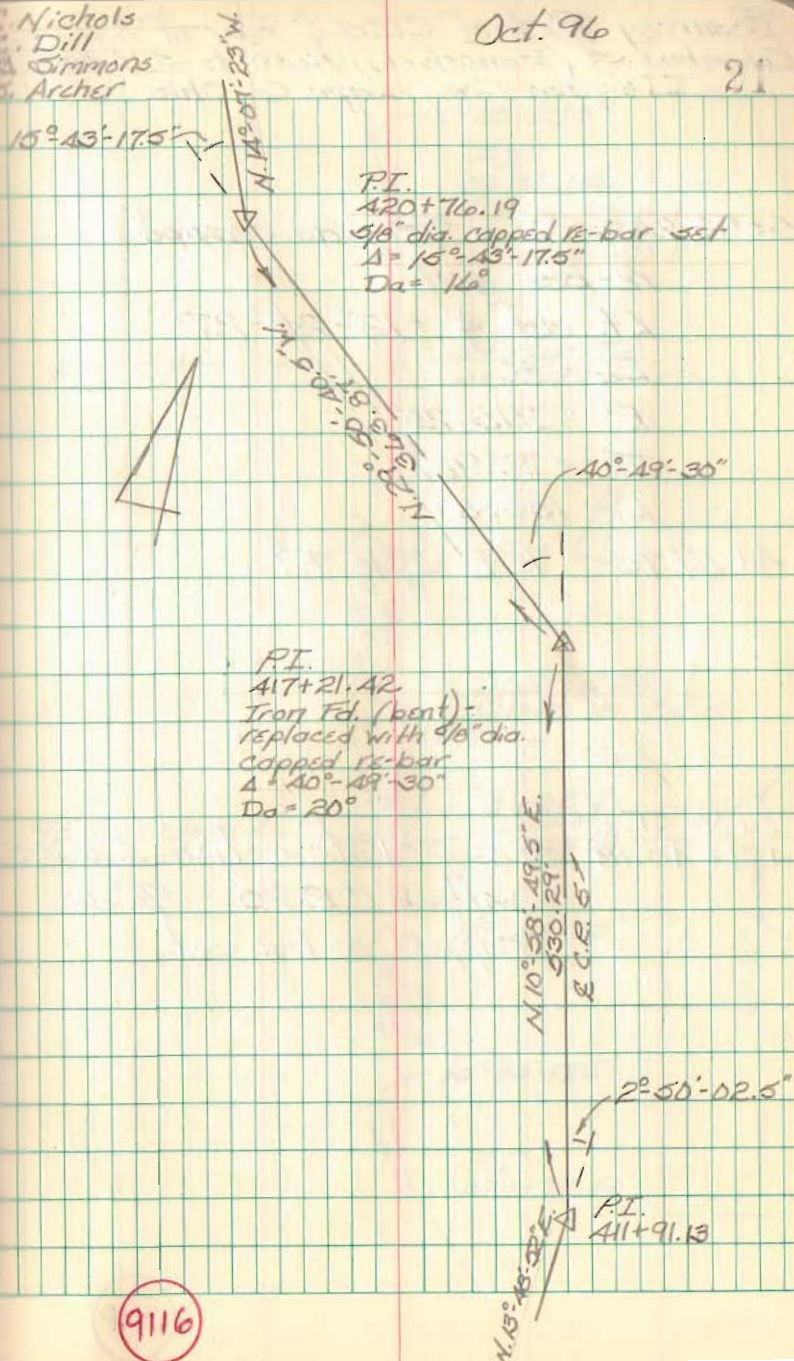 Nichols
Dill
Simmons
Archer
Oct. 96
21
15°-43'-17.5"
N.14°-07'-23"W.
P.I.
420+76.19
5/8" dia. capped re-bar set
Δ = 15°-43'-17.5"
Da = 16°
N.29°-50'-40.5"W.
363.87
40°-49'-30"
P.I.
417+21.42
Iron Fd. (bent)-
replaced with 5/8" dia.
capped re-bar
Δ = 40°-49'-30"
Da = 20°
N.10°-58'-49.5"E.
530.29'
℄ C.R. 5
2°-50'-02.5"
P.I.
411+91.13
N.13°-48'-52"E.
9116